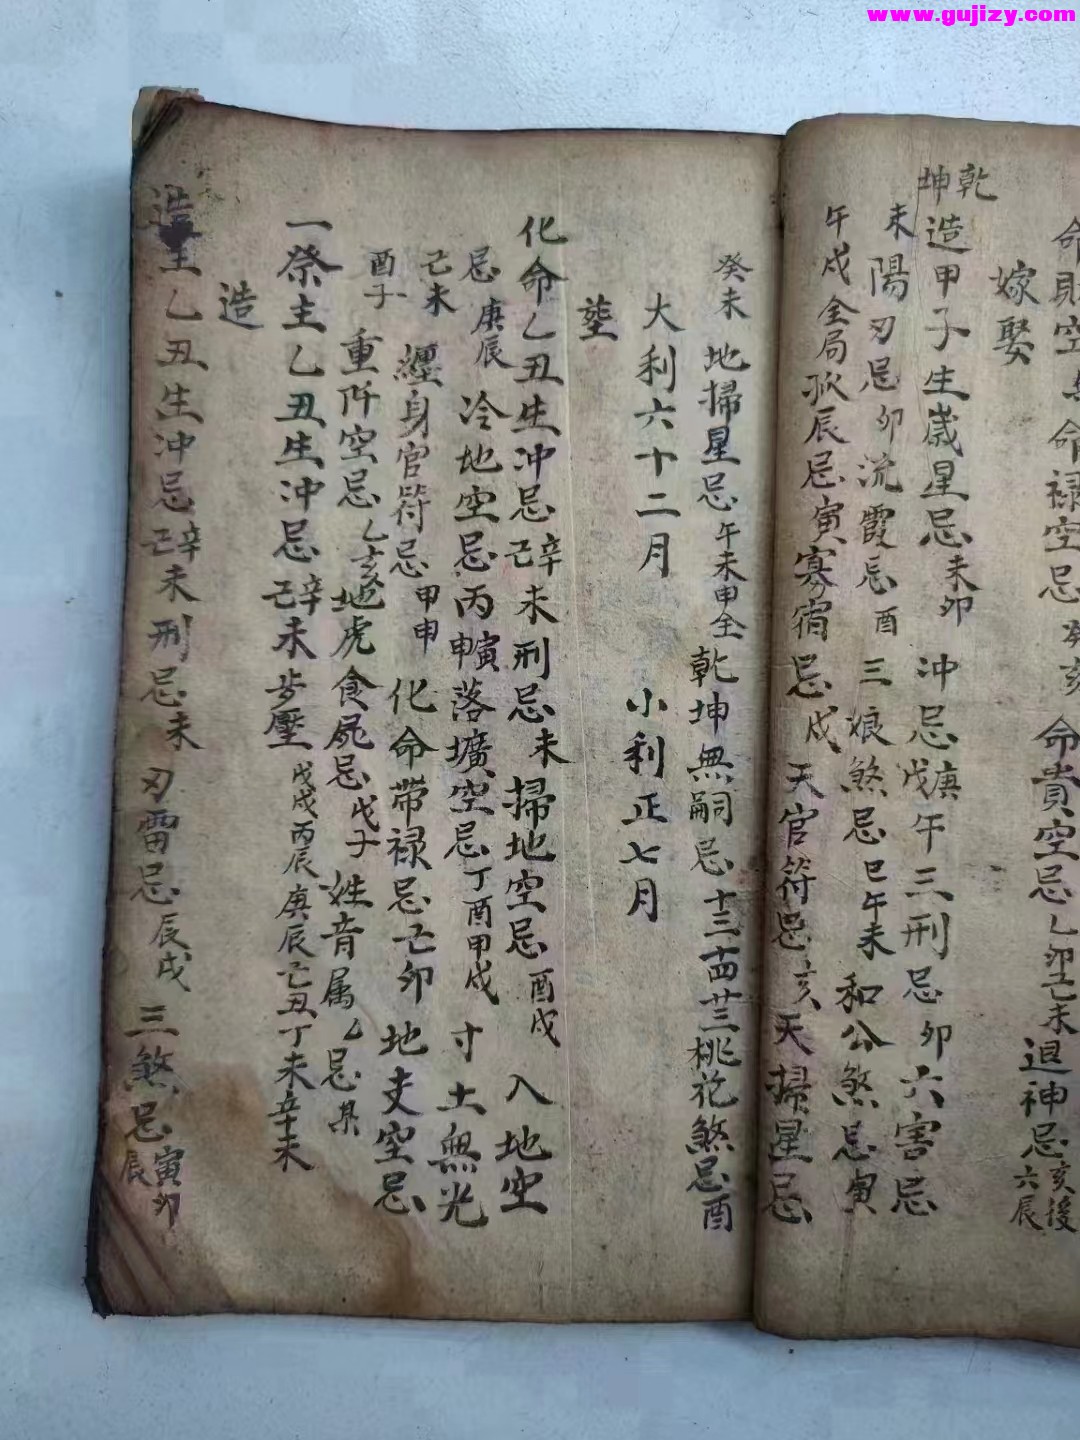 www.gujizy.com
命財空
命祿空忌癸亥 命貴空忌乙卯己未退神忌亥後六辰
嫁娶
乾坤造甲子生歲星忌未卯 冲忌庚戊午三刑忌卯六害忌
未陽刃忌卯流霞忌酉三娘煞忌巳午未和公煞忌寅
午戌全局孤辰忌寅寡宿忌戌天官符忌亥天掃星忌
癸未地掃星忌午未申全乾坤無嗣忌十三十四廿三桃花煞忌酉
大利六十二月 小利正七月
塟
化命乙丑生冲忌辛己未刑忌未掃地空忌酉戌入地空
忌庚辰冷地空忌丙寅申落壙空忌丁酉甲戌寸土無光
己未纏身官符忌甲申化命帶祿忌己卯地支空忌
酉子重阡空忌乙亥地虎食屍忌戊子姓音属乙忌某
一祭主乙丑生冲忌辛己未步壓戊戌丙辰庚辰己丑丁未辛未
造
造主乙丑生冲忌辛己未刑忌未刃雷忌辰戌三煞忌寅卯辰